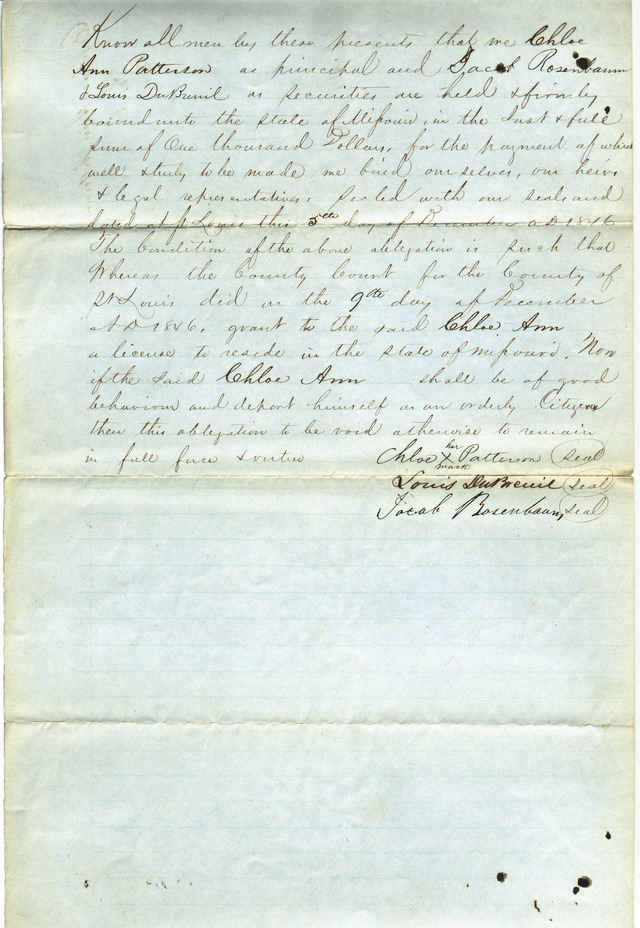 Know all men by these presents that we Chloe
Ann Patterson as principal and Jacob Rosenbaum
& Louis DuBreuil as securities are held & firmly
bound unto the state of Missouri, in the Just & full
sum of One thousand Dollars, for the payment of which
well & truly to be made we bind ourselves, our heirs
& legal representatives. Sealed with our seals and
dated at St Louis this 5th day of December AD 1846
The Condition of the above obligation is such that
Whereas the County Court for the County of
St Louis did on the 9th day of December
AD 1846, grant to the said Chloe Ann
a license to reside in the state of Missouri. Now
if the said Chloe Ann shall be of good
behaviour and deport himself as an orderly Citizen
then this obligation to be void otherwise to remain
in full force & virtue Chloe her X mark Patterson seal
Louis DuBreuil seal
Jacob Rosenbaum seal